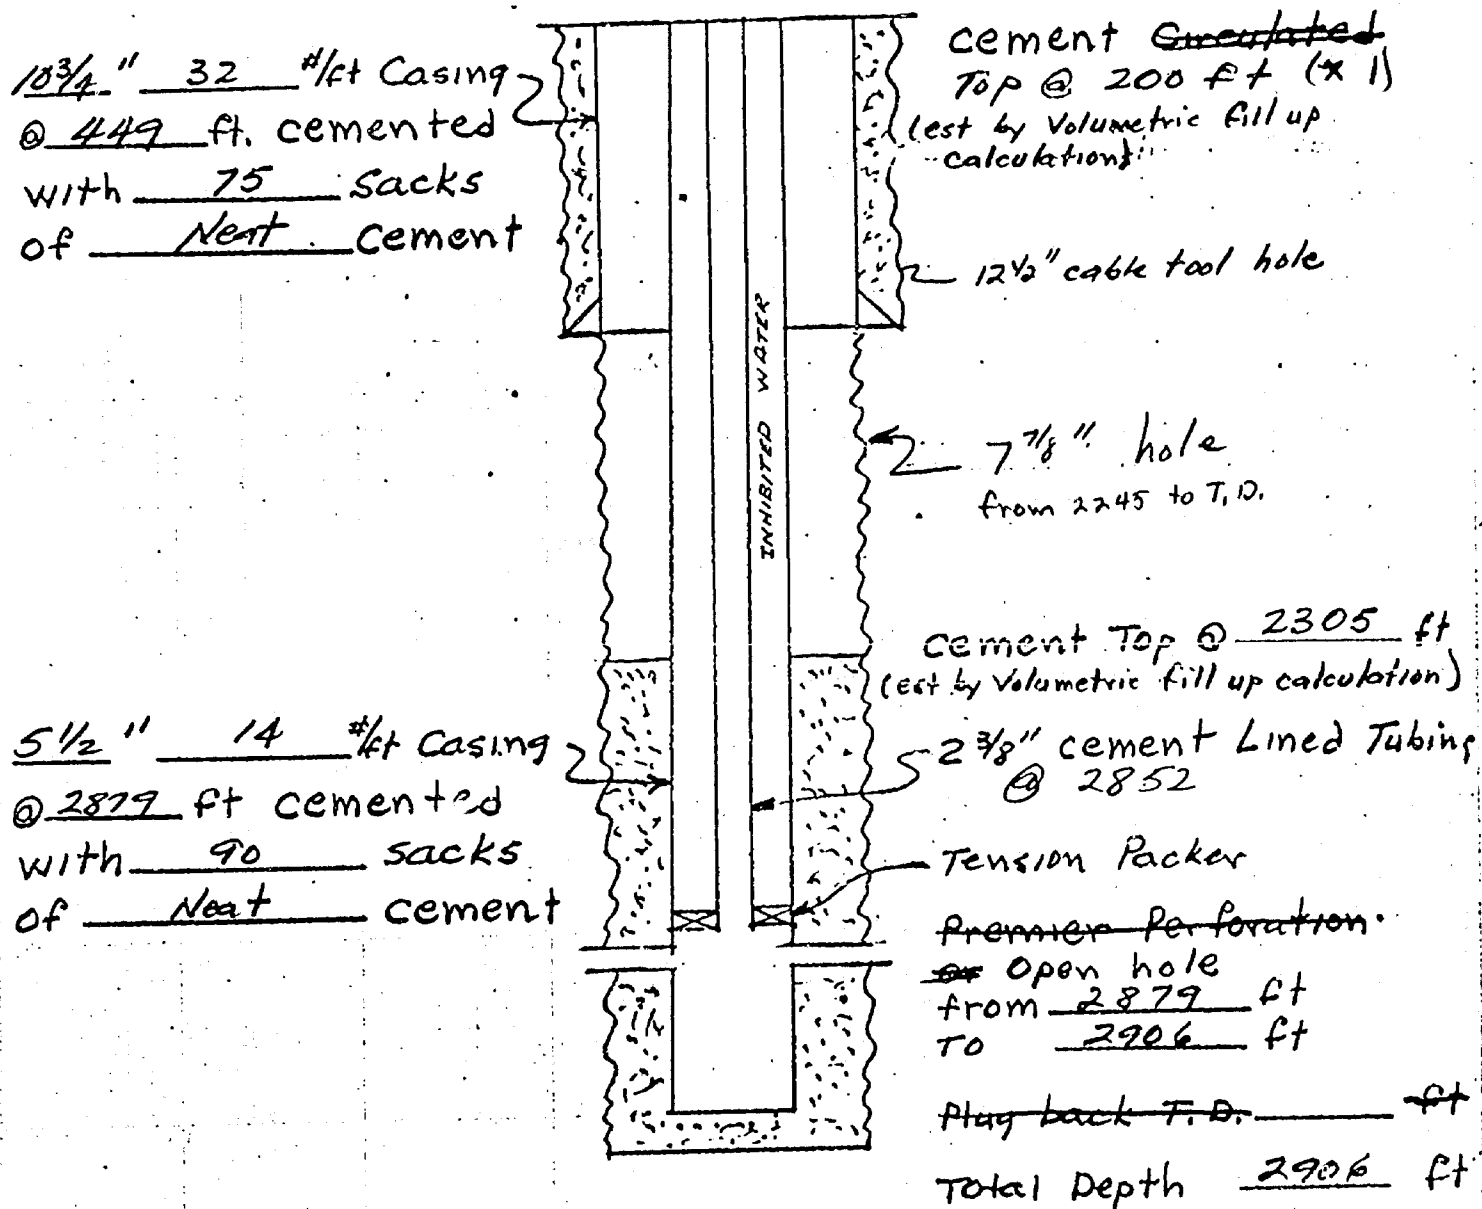 10 3/4 " 32 #/ft Casing
@ 449 ft. cemented
with 75 sacks
of Neat cement
cement Circulated
Top @ 200 ft (* 1)
(est by Volumetric fill up
calculation)
12 1/2" cable tool hole
INHIBITED WATER
7 7/8" hole
from 2245 to T.D.
cement Top @ 2305 ft
(est by Volumetric fill up calculation)
5 1/2 " 14 #/ft Casing
@ 2879 ft cemented
with 90 sacks
of Neat cement
2 3/8" cement Lined Tubing
@ 2852
Tension Packer
Premier Perforation
or Open hole
from 2879 ft
TO 2906 ft
Plug back T.D. ft
Total Depth 2906 ft